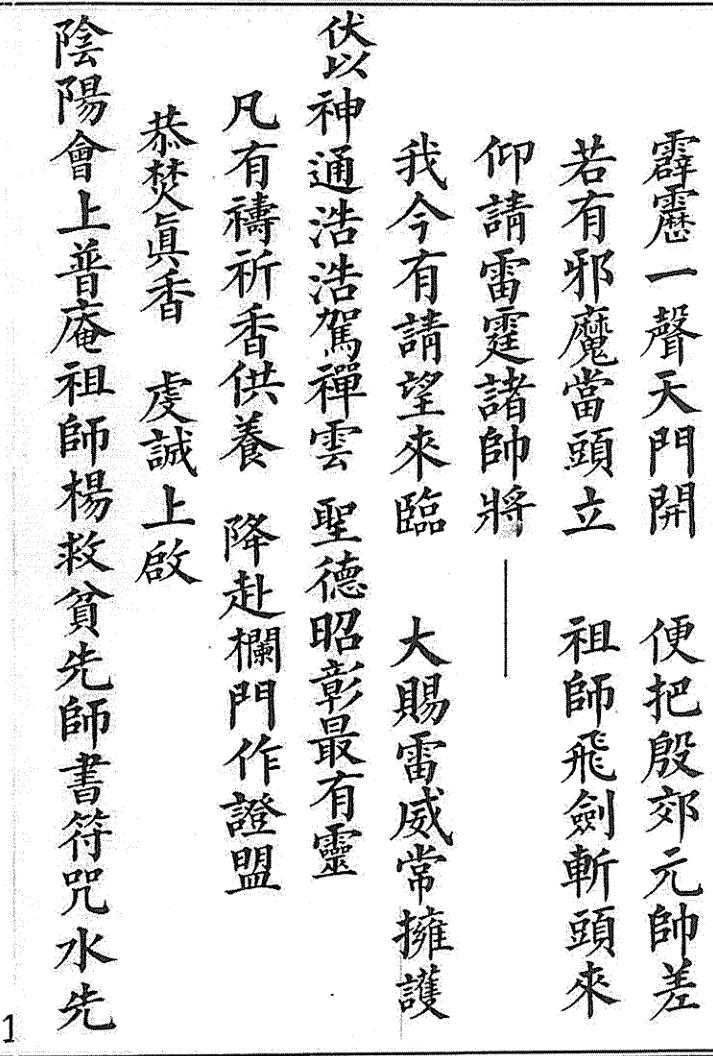 霹靂一聲天門開　便把殷郊元帥差
若有邪魔當頭立　祖師飛劍斬頭來
仰請雷霆諸帥將｜
我今有請望來臨　大賜雷威常擁護
伏以神通浩浩駕禪雲　聖德昭彰最有靈
凡有禱祈香供養　降赴欄門作證盟
恭焚眞香　虔誠上啟
陰陽會上普庵祖師楊救貧先師書符咒水先
1